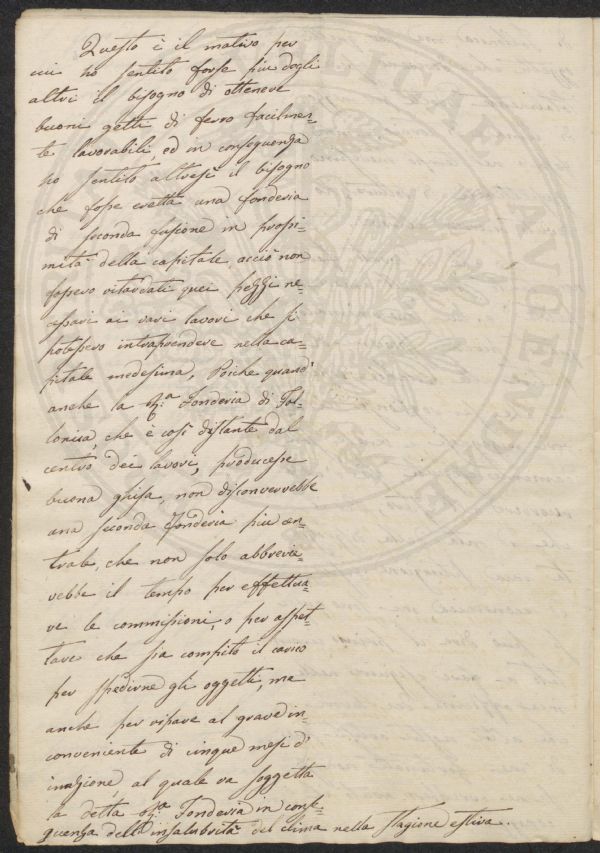 Questo è il motivo per
cui ho sentito forse piu degli
altri il bisogno di ottenere
buoni getti di ferro facilmen=
te lavorabili, ed in conseguenza
ho sentito altresì il bisogno
che fosse eretta una fonderia
di seconda fusione in prossi=
mità della capitale acciò non
fossero ritardati quei pezzi ne=
cessari ai vari lavori che si
potessero intraprendere nella ca=
pitale medesima, Poiche quand'
anche la R.ª Fonderia di Fol=
lonica, che è così distante dal
centro dei lavori, producesse
buona ghisa, non disconverrebbe
una seconda Fonderia piu cen=
trale, che non solo abbrevie=
rebbe il tempo per effettua=
re le commissioni, o per aspet=
tare che sia compito il carico
per spedirne gli oggetti, ma
anche per riparare al grave in=
conveniente di cinque mesi d'
inazione, al quale va soggetta
la detta R.ª Fonderia in conse=
guenza dell'insalubrità del clima nella stagione estiva.